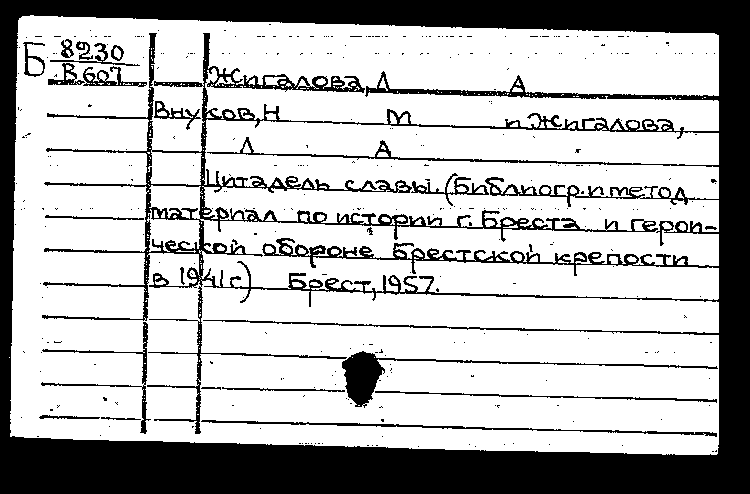 Б 8230
В607
Жигалова, Л А
Внуков, Н М и Жигалова,
Л А
Цитадель славы. (Библиогр. и метод
материал по истории г. Бреста и герои-
ческой обороне Брестской крепости
в 1941 г) Брест, 1957.